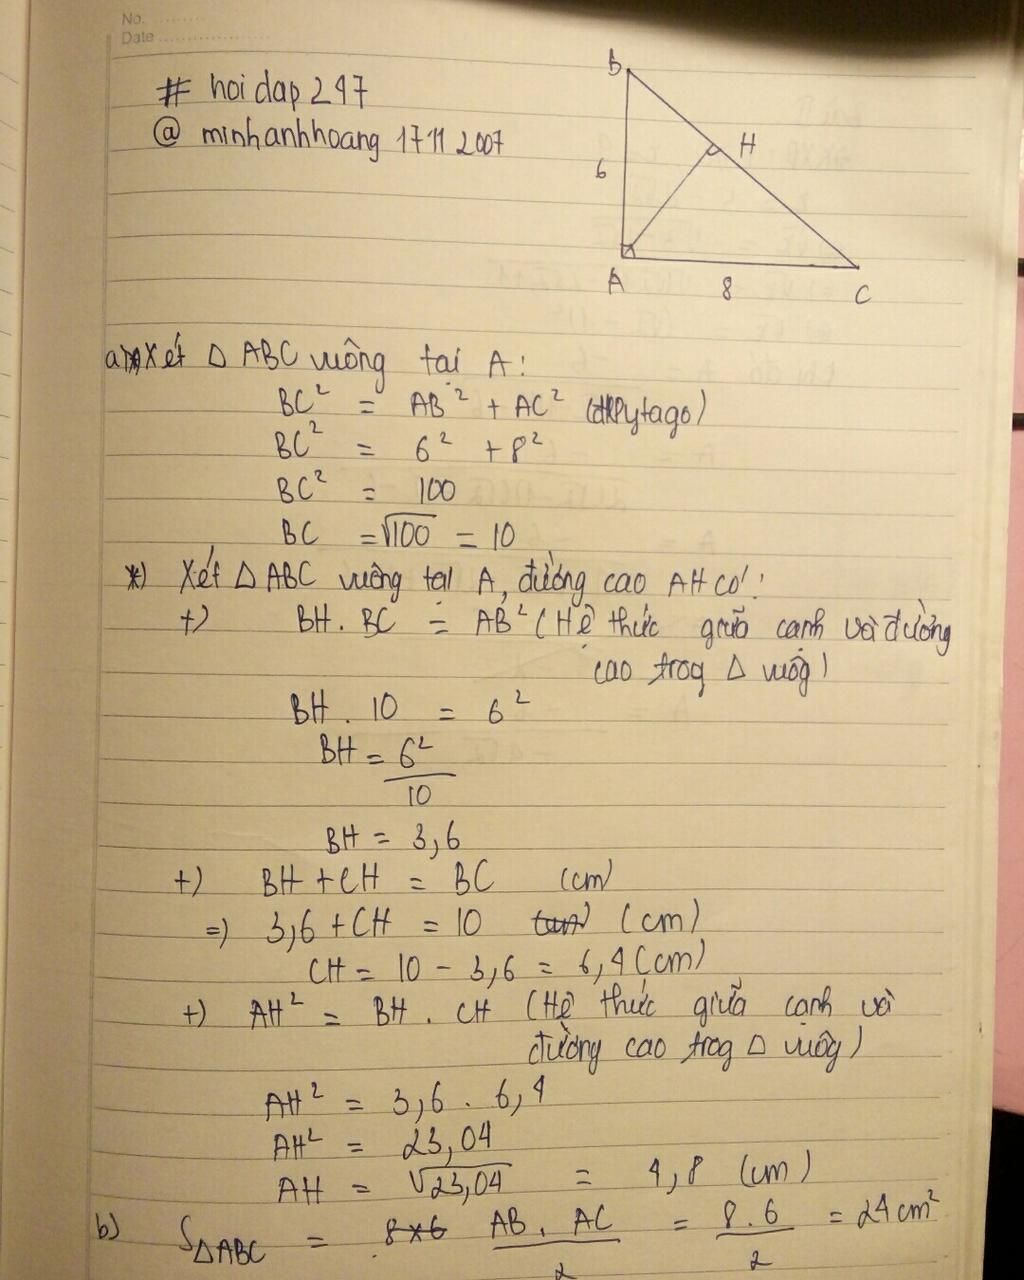 No. ..........
Date ....................
# hoidap247
@ minhanhhoang 17112007
B
H
6
A
8
C
a) Xét Δ ABC vuông tại A:
BC² = AB² + AC² (đl Pytago)
BC² = 6² + 8²
BC² = 100
BC = √100 = 10
*) Xét Δ ABC vuông tại A, đường cao AH có:
+) BH . BC = AB² (Hệ thức giữa cạnh và đường
cao trog Δ vuôg)
BH . 10 = 6²
BH = 6²/10
BH = 3,6
+) BH + CH = BC (cm)
=) 3,6 + CH = 10 (cm)
CH = 10 - 3,6 = 6,4 (cm)
+) AH² = BH . CH (Hệ thức giữa cạnh và
đường cao trog Δ vuôg)
AH² = 3,6 . 6,4
AH² = 23,04
AH = √23,04 = 4,8 (cm)
b) SΔABC = 8×6 AB . AC / 2 = 8 . 6 / 2 = 24 cm²